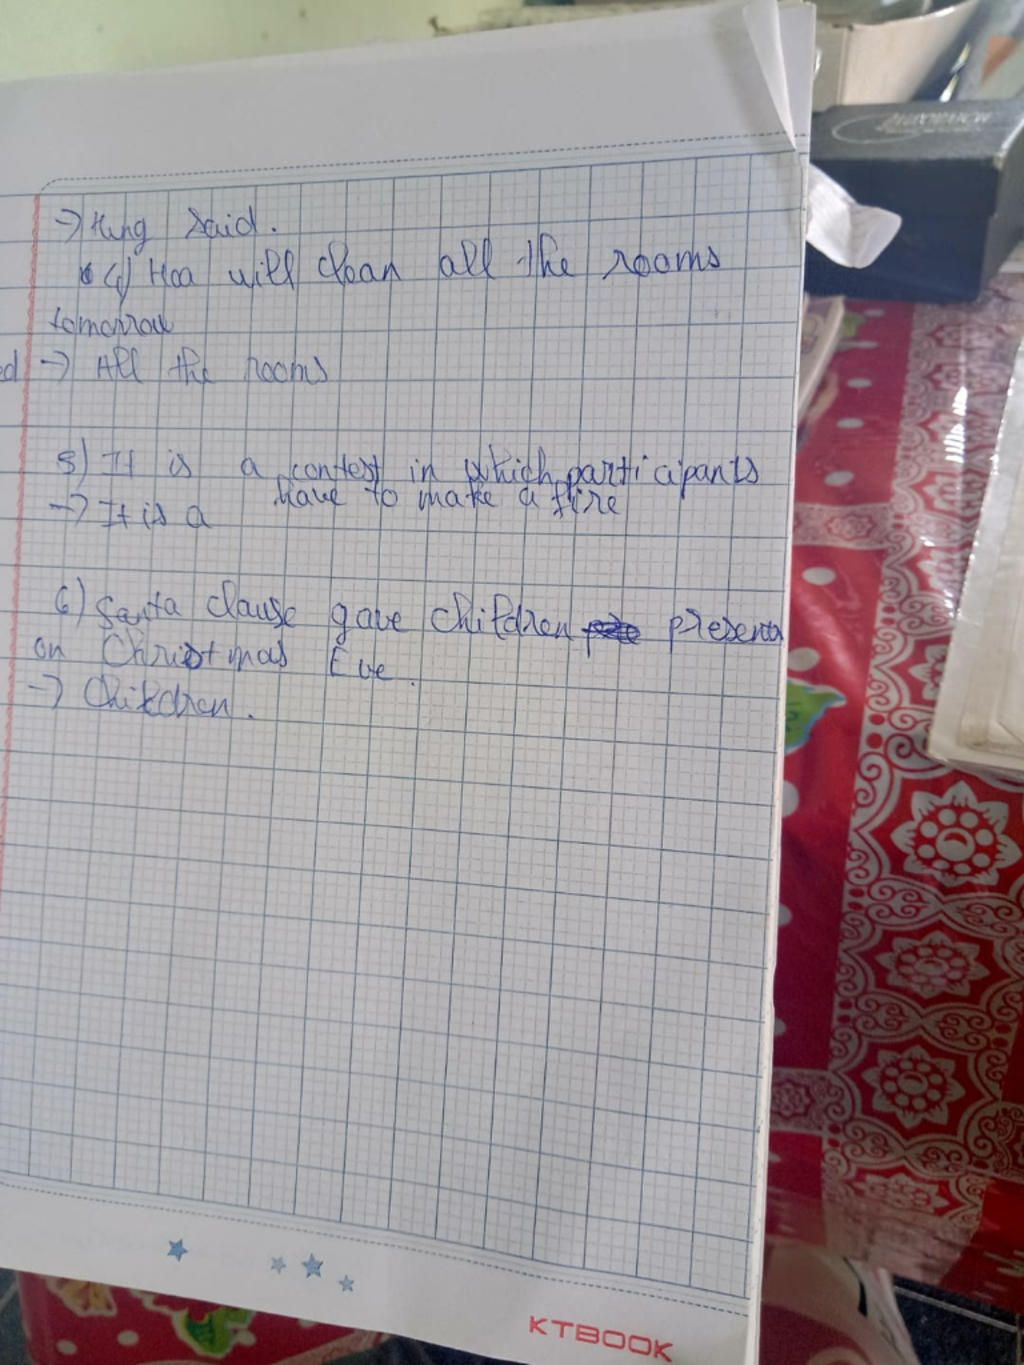 → Hung said.
4) Hoa will clean all the rooms
tomorrow
ed → All the rooms
5) It is a contest in which participants
have to make a fire
→ It is a
6) Santa Clause gave children presents
on Christmas Eve.
→ Children.
KTBOOK